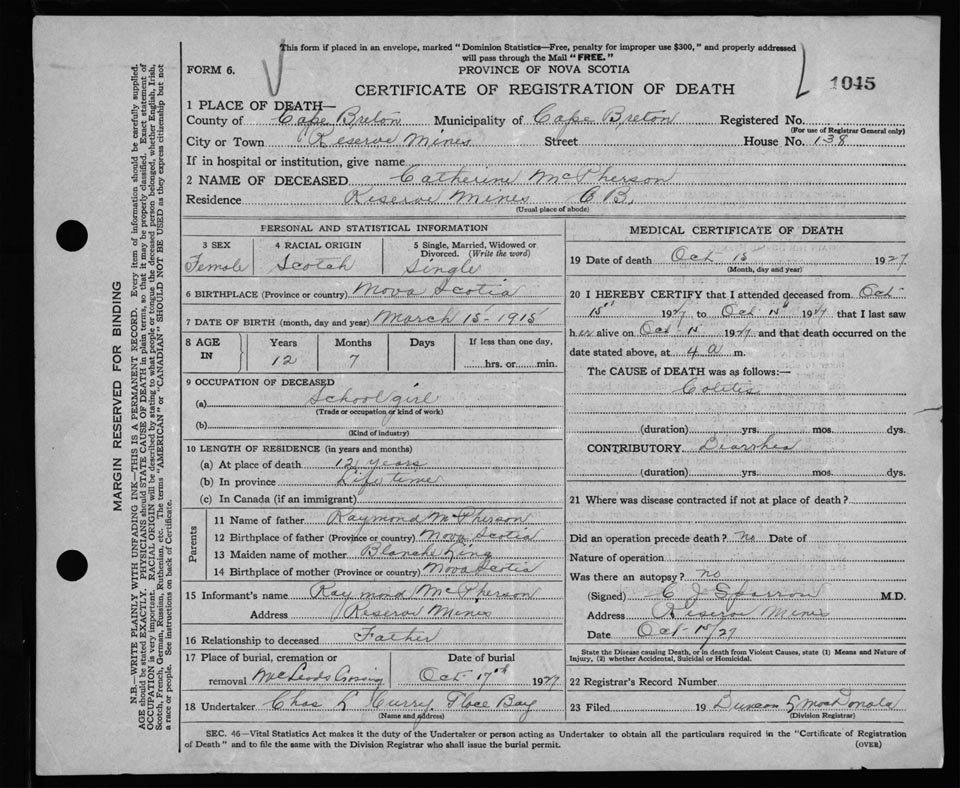 This form if placed in an envelope, marked "Dominion Statistics—Free, penalty for improper use $300," and properly addressed
will pass through the Mail "FREE."
FORM 6.
PROVINCE OF NOVA SCOTIA
1045
CERTIFICATE OF REGISTRATION OF DEATH
1 PLACE OF DEATH—
County of Cape Breton Municipality of Cape Breton Registered No.
(For use of Registrar General only)
City or Town Reserve Mines Street House No. 138
If in hospital or institution, give name
2 NAME OF DECEASED Catherine McPherson
Residence Reserve Mines C B.
(Usual place of abode)
PERSONAL AND STATISTICAL INFORMATION
3 SEX 4 RACIAL ORIGIN 5 Single, Married, Widowed or
Divorced. (Write the word)
Female Scotch Single
6 BIRTHPLACE (Province or country) Nova Scotia
7 DATE OF BIRTH (month, day and year) March 15 - 1915
8 AGE IN Years Months Days If less than one day,
12 7 hrs. or min.
9 OCCUPATION OF DECEASED
(a) School girl
(Trade or occupation or kind of work)
(b)
(Kind of industry)
10 LENGTH OF RESIDENCE (in years and months)
(a) At place of death 12 years
(b) In province Life time
(c) In Canada (if an immigrant)
Parents
11 Name of father Raymond McPherson
12 Birthplace of father (Province or country) Nova Scotia
13 Maiden name of mother Blanche King
14 Birthplace of mother (Province or country) Nova Scotia
15 Informant's name Raymond McPherson
Address Reserve Mines
16 Relationship to deceased Father
17 Place of burial, cremation or Date of burial
removal McLeods Crossing Oct 17th 1927
18 Undertaker Chas L Curry Glace Bay
(Name and address)
MEDICAL CERTIFICATE OF DEATH
19 Date of death Oct 15 1927
(Month, day and year)
20 I HEREBY CERTIFY that I attended deceased from Oct
15" 1927 to Oct 15" 1927 that I last saw
her alive on Oct 15 1927 and that death occurred on the
date stated above, at 4 a m.
The CAUSE of DEATH was as follows:—
Colitis
(duration) yrs. mos. dys.
CONTRIBUTORY Diarrhea
(duration) yrs. mos. dys.
21 Where was disease contracted if not at place of death?
Did an operation precede death? no Date of
Nature of operation
Was there an autopsy? no
(Signed) C J Sparrow M.D.
Address Reserve Mines
Date Oct 15/27
State the Disease causing Death, or in death from Violent Causes, state (1) Means and Nature of
Injury, (2) whether Accidental, Suicidal or Homicidal.
22 Registrar's Record Number
23 Filed 19 Duncan MacDonald
(Division Registrar)
SEC. 46—Vital Statistics Act makes it the duty of the Undertaker or person acting as Undertaker to obtain all the particulars required in the "Certificate of Registration
of Death" and to file the same with the Division Registrar who shall issue the burial permit.
(OVER)
MARGIN RESERVED FOR BINDING
N.B.—WRITE PLAINLY WITH UNFADING INK—THIS IS A PERMANENT RECORD. Every item of information should be carefully supplied.
AGE should be stated EXACTLY. PHYSICIANS should STATE CAUSE OF DEATH in plain terms, so that it may be properly classified. Exact statement of
OCCUPATION is very important. RACIAL ORIGIN will be described by stating to what people or tongue the deceased person belonged, whether English, Irish,
Scotch, French, German, Russian, Ruthenian, etc. The terms "AMERICAN" or "CANADIAN" SHOULD NOT BE USED as they express citizenship but not
a race or people. See instructions on back of Certificate.